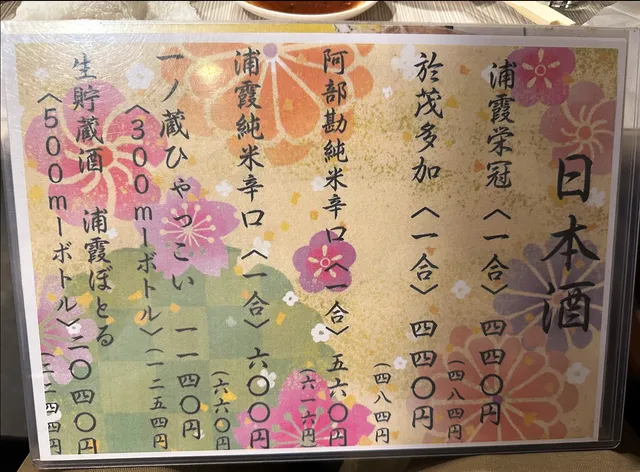 日本酒
浦霞栄冠〈一合〉四四〇円
（四八四円）
於茂多加〈一合〉四四〇円
（四八四円）
阿部勘純米辛口〈一合〉五六〇円
（六一六円）
浦霞純米辛口〈一合〉六〇〇円
（六六〇円）
一ノ蔵ひゃっこい 一一四〇円
〈300mーボトル〉（一二五四円）
生貯蔵酒 浦霞ぼとる 二〇四〇円
〈500mーボトル〉（二二四四円）